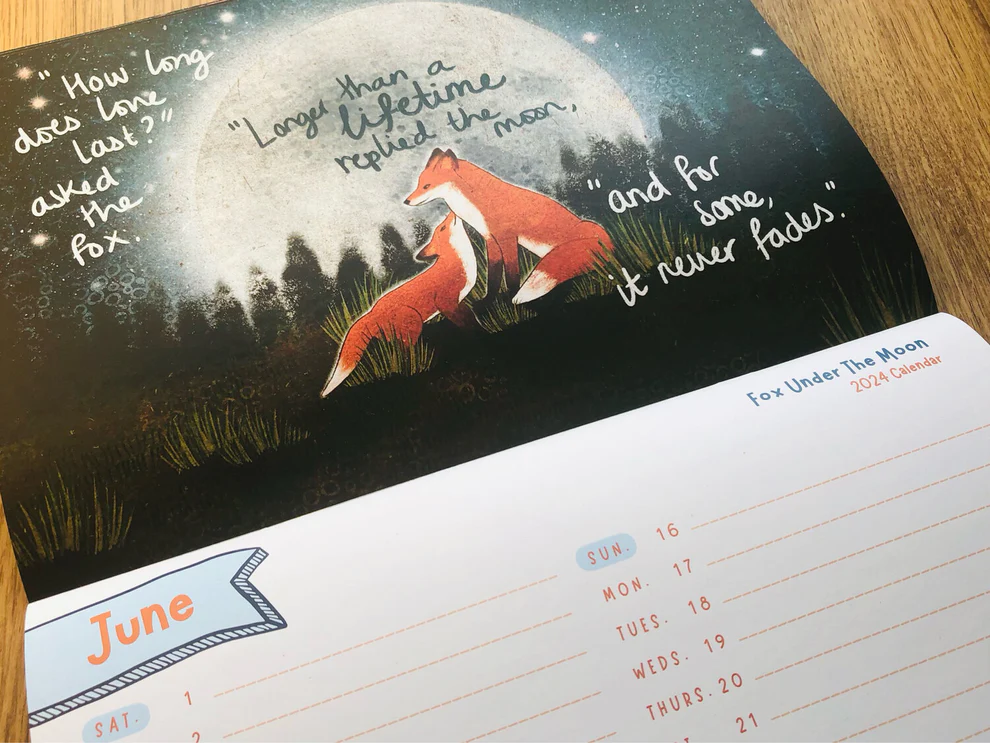 "How long
does love
last?"
asked
the
fox.
"Longer than a
lifetime
replied the moon,
"and for
some,
it never fades."
Fox Under The Moon
2024 Calendar
June
SAT. 1
2
SUN. 16
MON. 17
TUES. 18
WEDS. 19
THURS. 20
21